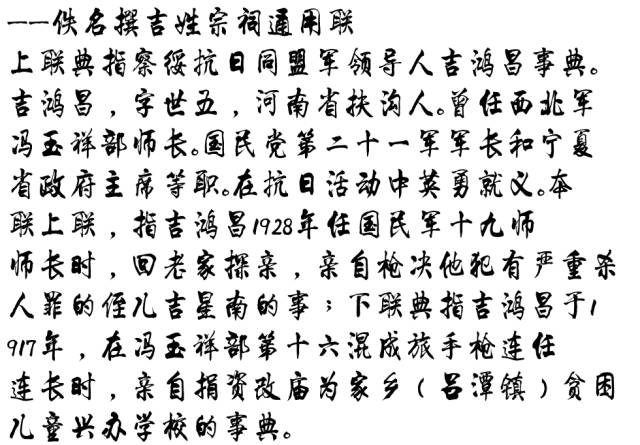 ——佚名撰吉姓宗祠通用联
上联典指察绥抗日同盟军领导人吉鸿昌事典。
吉鸿昌，字世五，河南省扶沟人。曾任西北军
冯玉祥部师长。国民党第二十一军军长和宁夏
省政府主席等职。在抗日活动中英勇就义。本
联上联，指吉鸿昌1928年任国民军十九师
师长时，回老家探亲，亲自枪决他犯有严重杀
人罪的侄儿吉星南的事；下联典指吉鸿昌于1
917年，在冯玉祥部第十六混成旅手枪连任
连长时，亲自捐资改庙为家乡（吕潭镇）贫困
儿童兴办学校的事典。